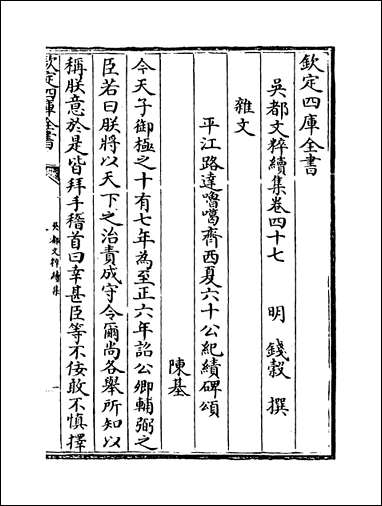 欽定四庫全書
吳都文粹續集卷四十七　明　錢穀　撰
雜文
平江路達嚕噶齊西夏六十公紀績碑頌
陳基
今天子御極之十有七年為至正六年詔公卿輔弼之
臣若曰朕將以天下之治責成守令爾尚各舉所知以
稱朕意於是皆拜手稽首曰幸甚臣等不佞敢不慎擇
欽定四庫全書
吳都文粹續集
一